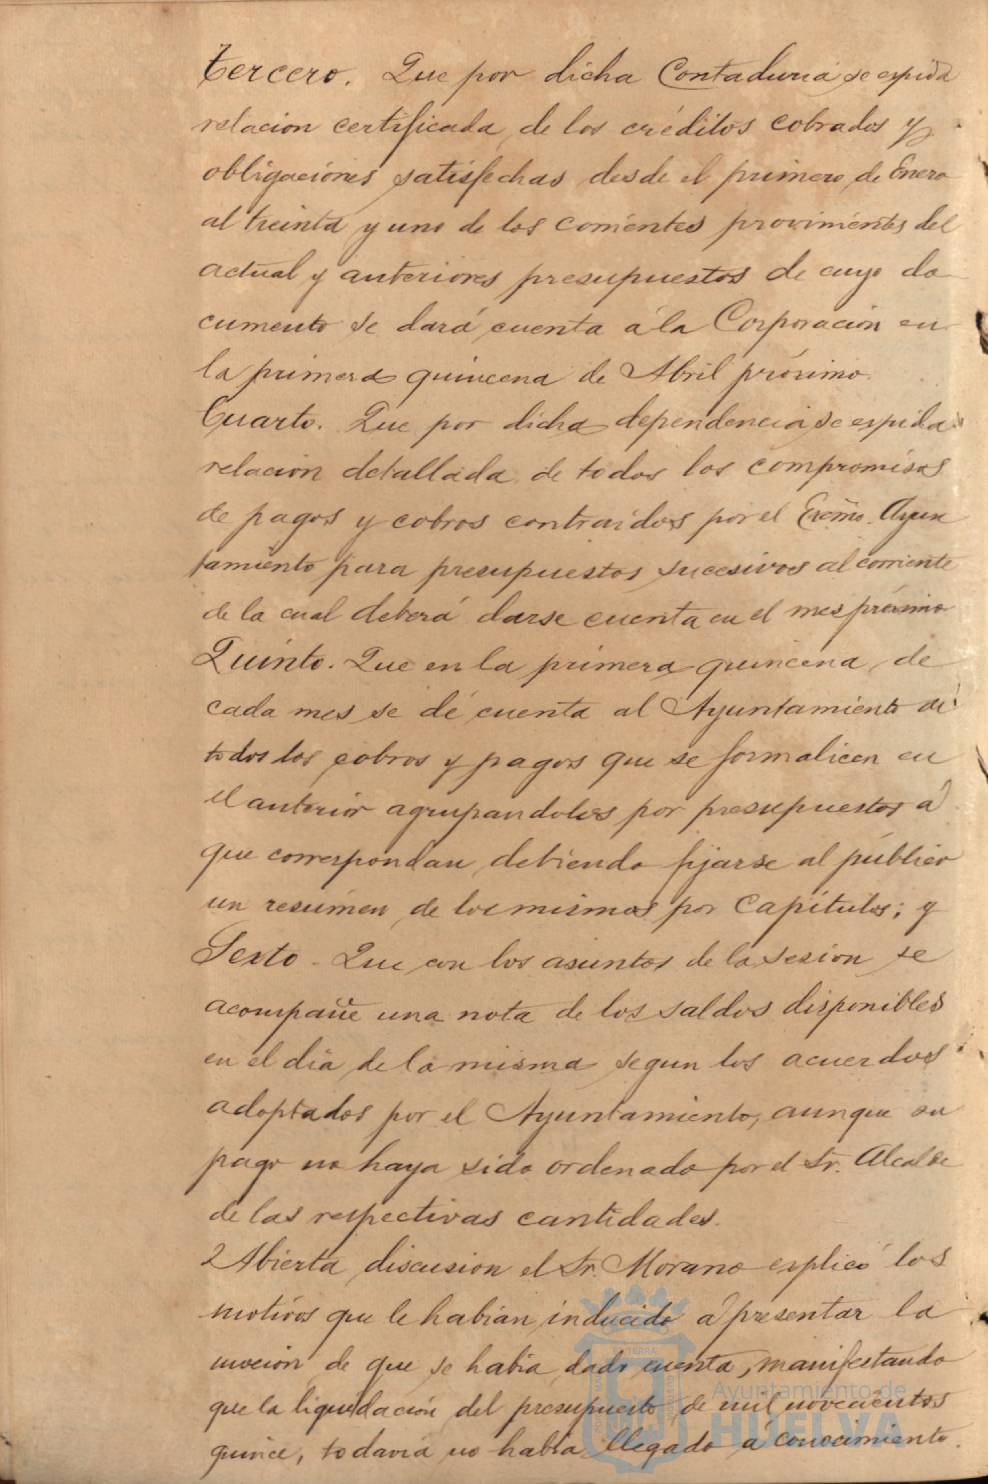 tercero. Que por dicha Contaduria se espida
relacion certificada de los créditos cobrados y
obligaciónes satisfechas desde el primero de Enero
al treinta y uno de los corrientes provinientes del
actual y anteriores presupuestos de cuyo do
cumento se dará cuenta á la Corporación en
la primera quincena de Abril próximo.
Cuarto. Que por dicha dependencia se espida
relación detallada de todos los compromisos
de pagos y cobros contraidos por el Excmo. Ayun
tamiento para presupuestos sucesivos al corriente
de la cual deberá darse cuenta en el mes próximo
Quinto. Que en la primera quincena de
cada mes se dé cuenta al Ayuntamiento de
todos los cobros y pagos que se formalicen en
el anterior agrupandolos por presupuestos á
que correspondan debiendo fijarse al público
un resúmen de los mismos por Capítulos; y
Sexto - Que con los asuntos de la sesion se
acompañe una nota de los saldos disponibles
en el dia de la misma segun los acuerdos
adoptados por el Ayuntamiento, aunque su
pago no haya sido ordenado por el Sr. Alcalde
de las respectivas cantidades.
Abierta discusion el Sr. Morano esplicó los
motivos que le habian inducido á presentar la
moción de que se habia dado cuenta, manifestando
que la liquidación del presupuesto de mil novecientos
quince, todavia no habia llegado á conocimiento.
Ayuntamiento de
HUELVA